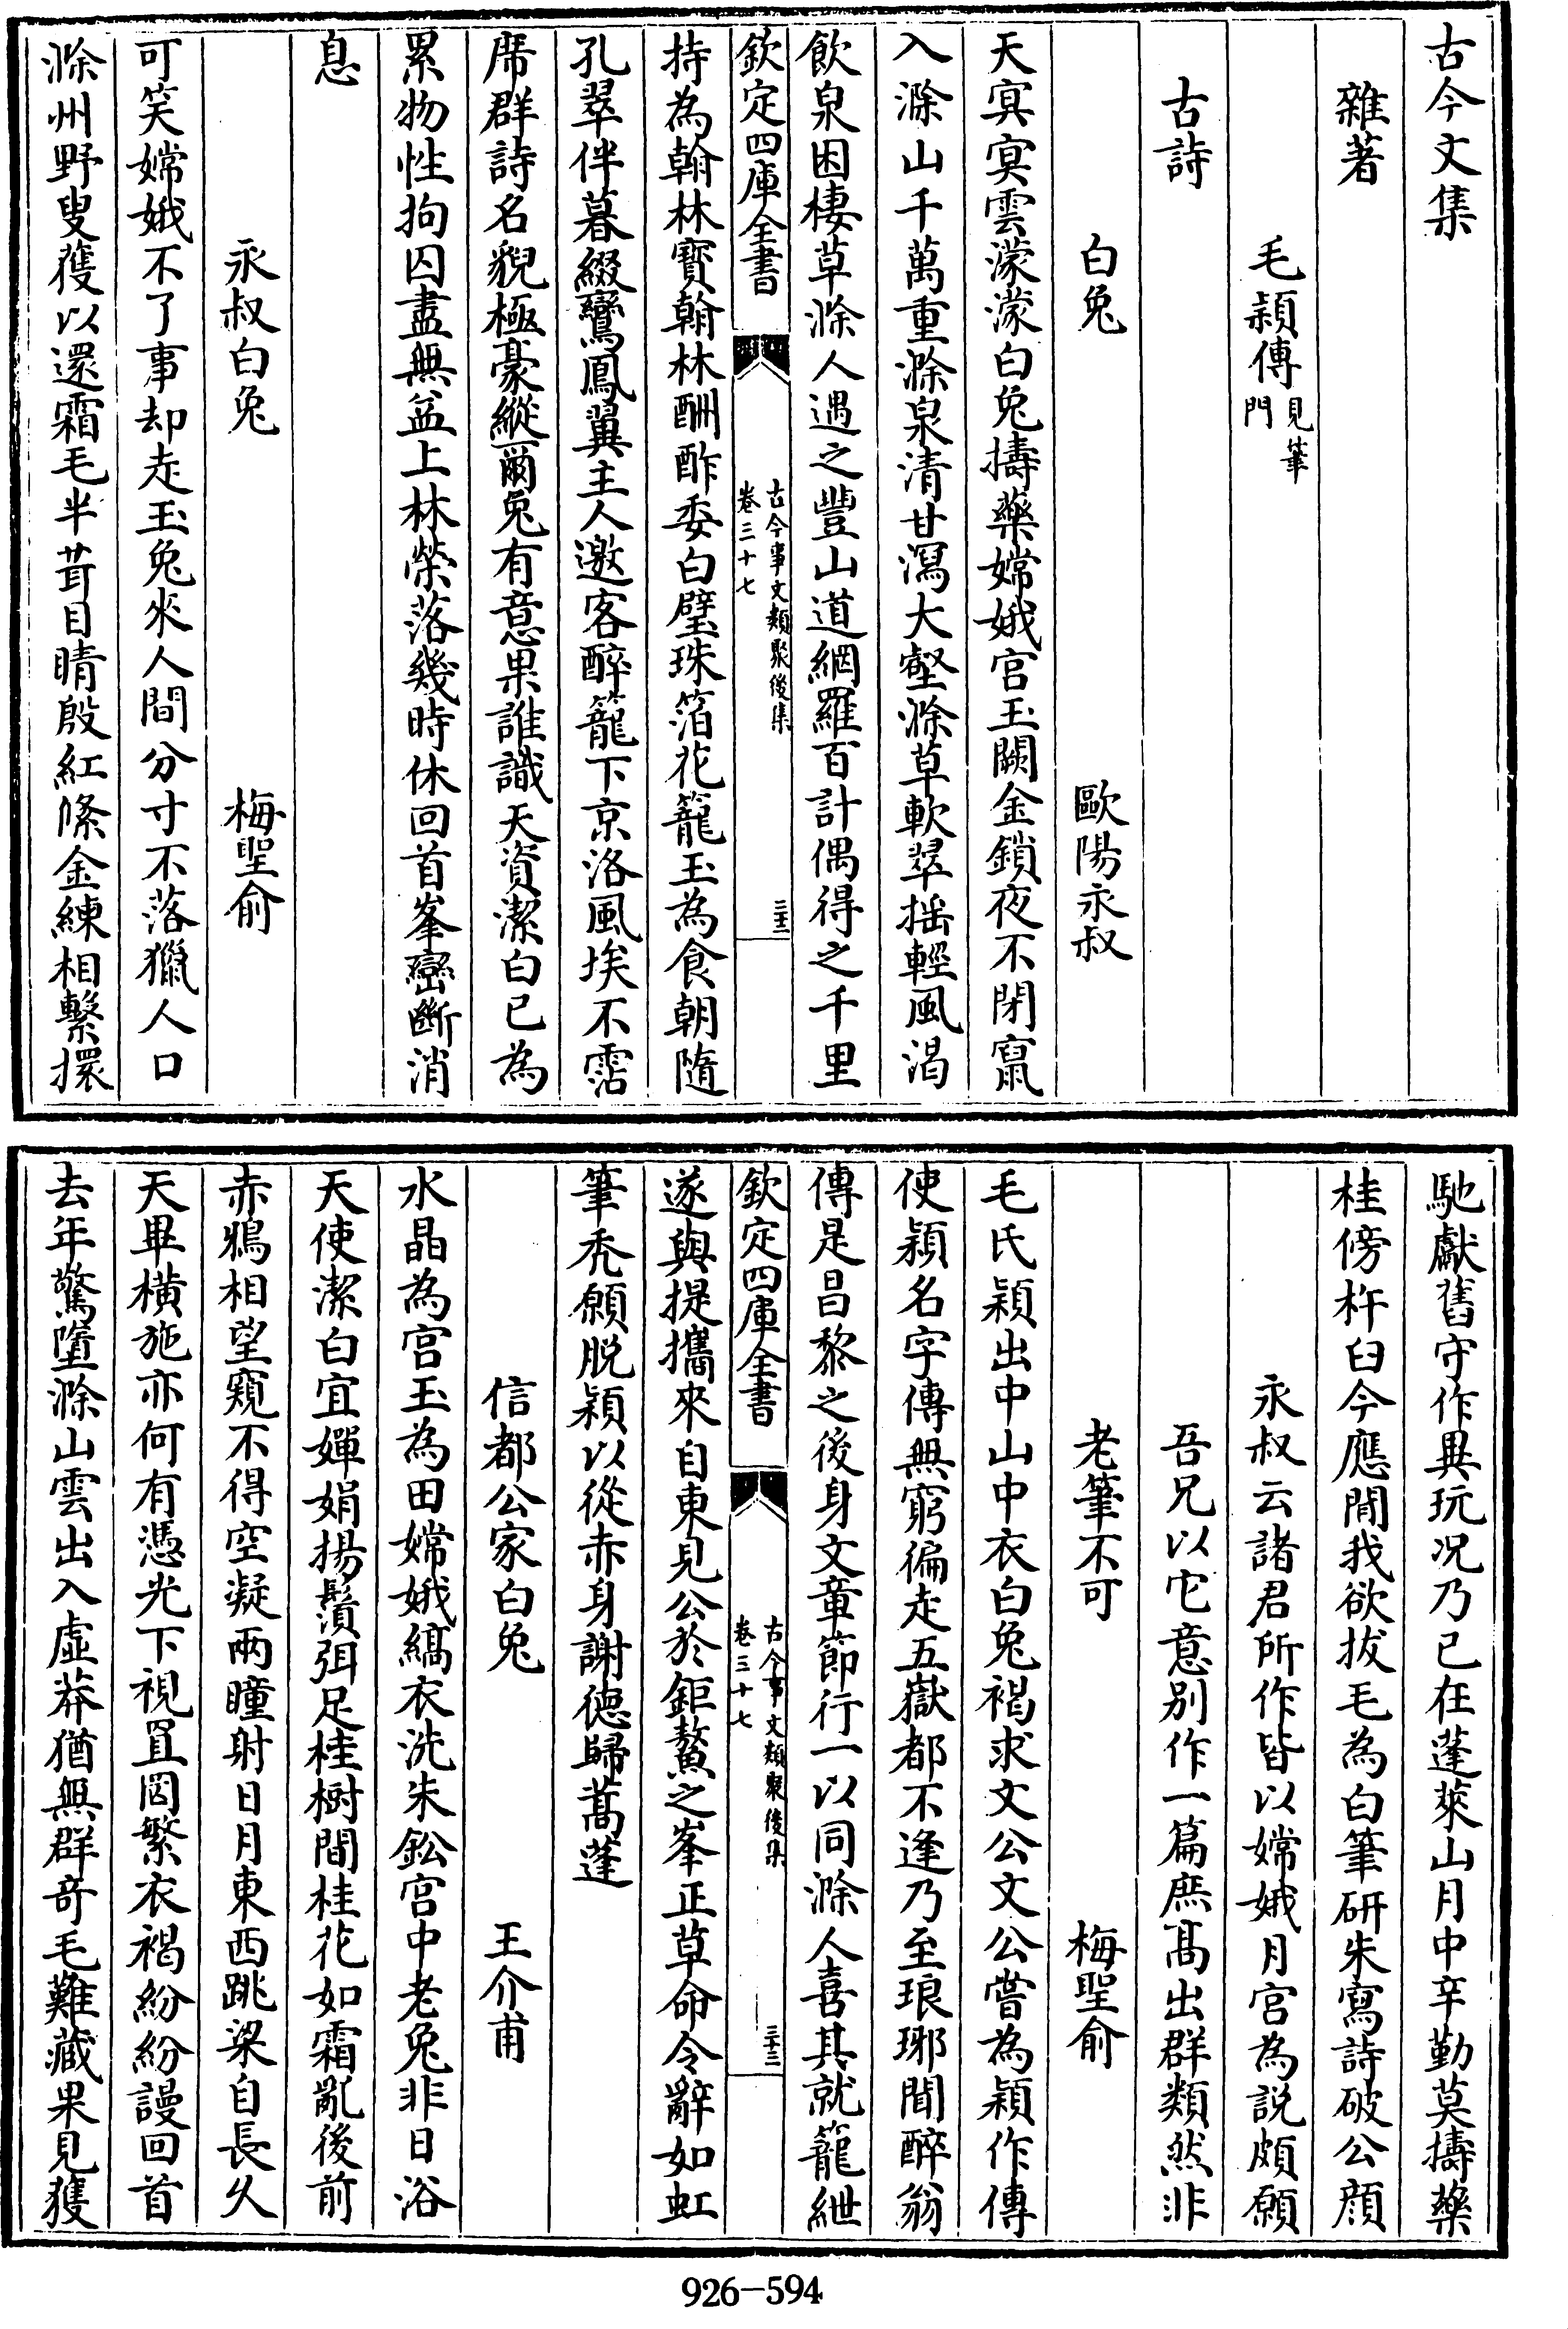 古今文集
雜著
毛穎傳見筆門
古詩
白兔 歐陽永叔
天冥冥雲濛濛白兔擣藥嫦娥宫玉闕金鎖夜不閉竄
入滁山千萬重滁泉清甘瀉大壑滁草軟翠揺輕風渇
飲泉困棲草滁人遇之豐山道網羅百計偶得之千里
欽定四庫全書 古今事文類聚後集卷三十七 三十三
持為翰林寳翰林酬酢委白璧珠箔花籠玉為食朝隨
孔翠伴暮綴鸞鳳翼主人邀客醉籠下京洛風埃不霑
席群詩名貌極豪縱爾兔有意果誰識天資潔白已為
累物性拘囚盡無益上林榮落幾時休回首峯巒斷消
息
永叔白兔 梅聖俞
可笑嫦娥不了事却走玉兔來人間分寸不落獵人口
滁州野叟獲以還霜毛半茸目睛殷紅絛金練相繫擐
馳獻舊守作異玩况乃已在蓬萊山月中辛勤莫擣藥
桂傍杵臼今應閒我欲拔毛為白筆研朱寫詩破公顔
永叔云諸君所作皆以嫦娥月宫為説頗願
吾兄以它意别作一篇庶髙出群類然非
老筆不可 梅聖俞
毛氏穎出中山中衣白兔褐求文公文公嘗為穎作傳
使穎名字傳無窮徧走五嶽都不逢乃至琅琊聞醉翁
傳是昌黎之後身文章節行一以同滁人喜其就籠紲
欽定四庫全書 古今事文類聚後集卷三十七 三十三
遂與提攜來自東見公於鉅鰲之峯正草命令辭如虹
筆秃願脱穎以從赤身謝徳歸蒿蓬
信都公家白兔 王介甫
水晶為宫玉為田嫦娥縞衣洗朱鉛宫中老兔非日浴
天使潔白宜嬋娟揚鬚弭足桂樹間桂花如霜亂後前
赤鴉相望窺不得空凝兩瞳射日月東西跳梁自長久
天畢横施亦何有憑光下視罝罔繁衣褐紛紛謾回首
去年驚墮滁山雲出入虚莽猶無群奇毛難藏果見獲
926-594